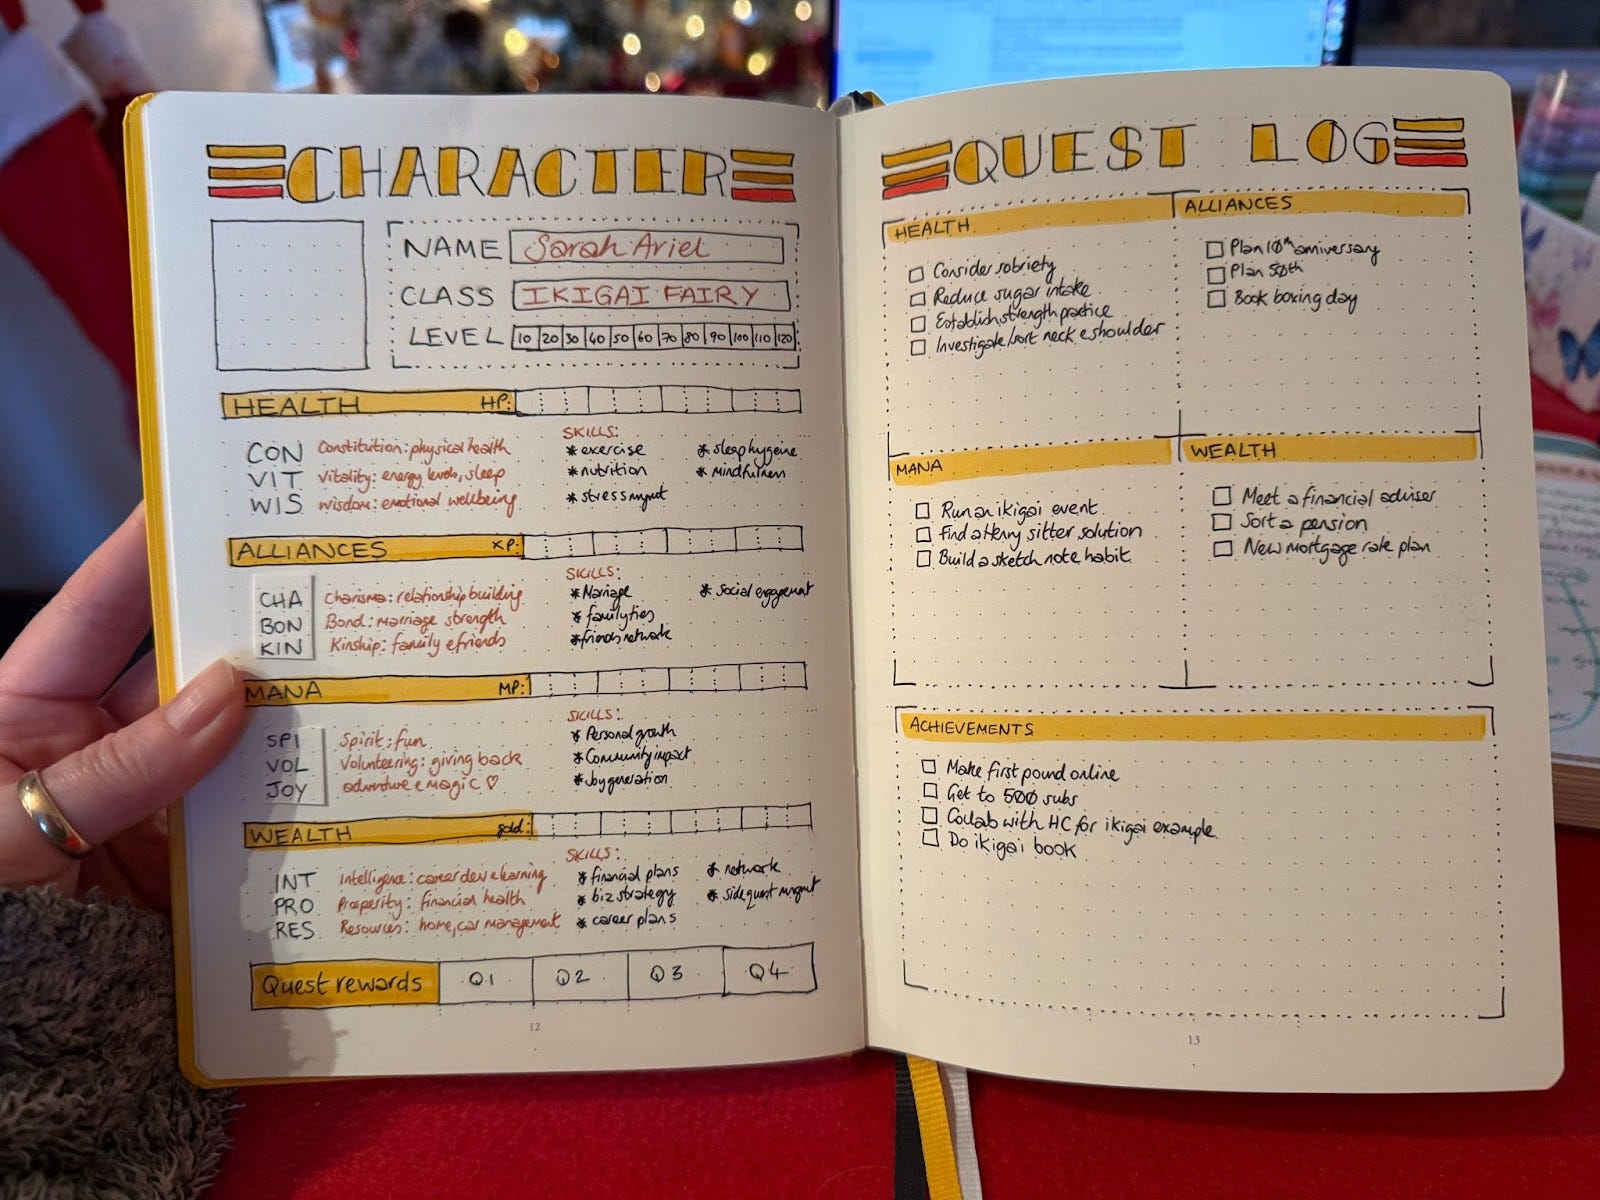 CHARACTER
NAME Sarah Ariel
CLASS IKIGAI FAIRY
LEVEL 10 20 30 40 50 60 70 80 90 100 110 120
HEALTH HP:
SKILLS:
CON Constitution: physical health
VIT Vitality: energy levels, sleep
WIS Wisdom: emotional wellbeing
* exercise
* nutrition
* stress mgmt
* sleep hygiene
* mindfulness
ALLIANCES XP:
SKILLS:
CHA Charisma: relationship building
BON Bond: marriage strength
KIN Kinship: family & friends
* Marriage
* family ties
* friends network
* Social engagement
MANA MP:
SKILLS:
SPI Spirit: fun
VOL Volunteering: giving back
JOY adventure & magic ♡
* Personal growth
* Community impact
* Joy generation
WEALTH gold:
SKILLS:
INT Intelligence: career dev & learning
PRO Prosperity: financial health
RES Resources: home, car management
* financial plans
* biz strategy
* career plans
* network
* side quest mngmt
Quest rewards Q1 Q2 Q3 Q4
12
QUEST LOG
HEALTH
Consider sobriety
Reduce sugar intake
Establish strength practice
Investigate/sort neck & shoulder
ALLIANCES
Plan 10th anniversary
Plan 50th
Book boxing day
MANA
Run an ikigai event
Find a Henry sitter solution
Build a sketch note habit
WEALTH
Meet a financial adviser
Sort a pension
New mortgage rate plan
ACHIEVEMENTS
Make first pound online
Get to 500 subs
Collab with HC for ikigai example
Do ikigai book
13